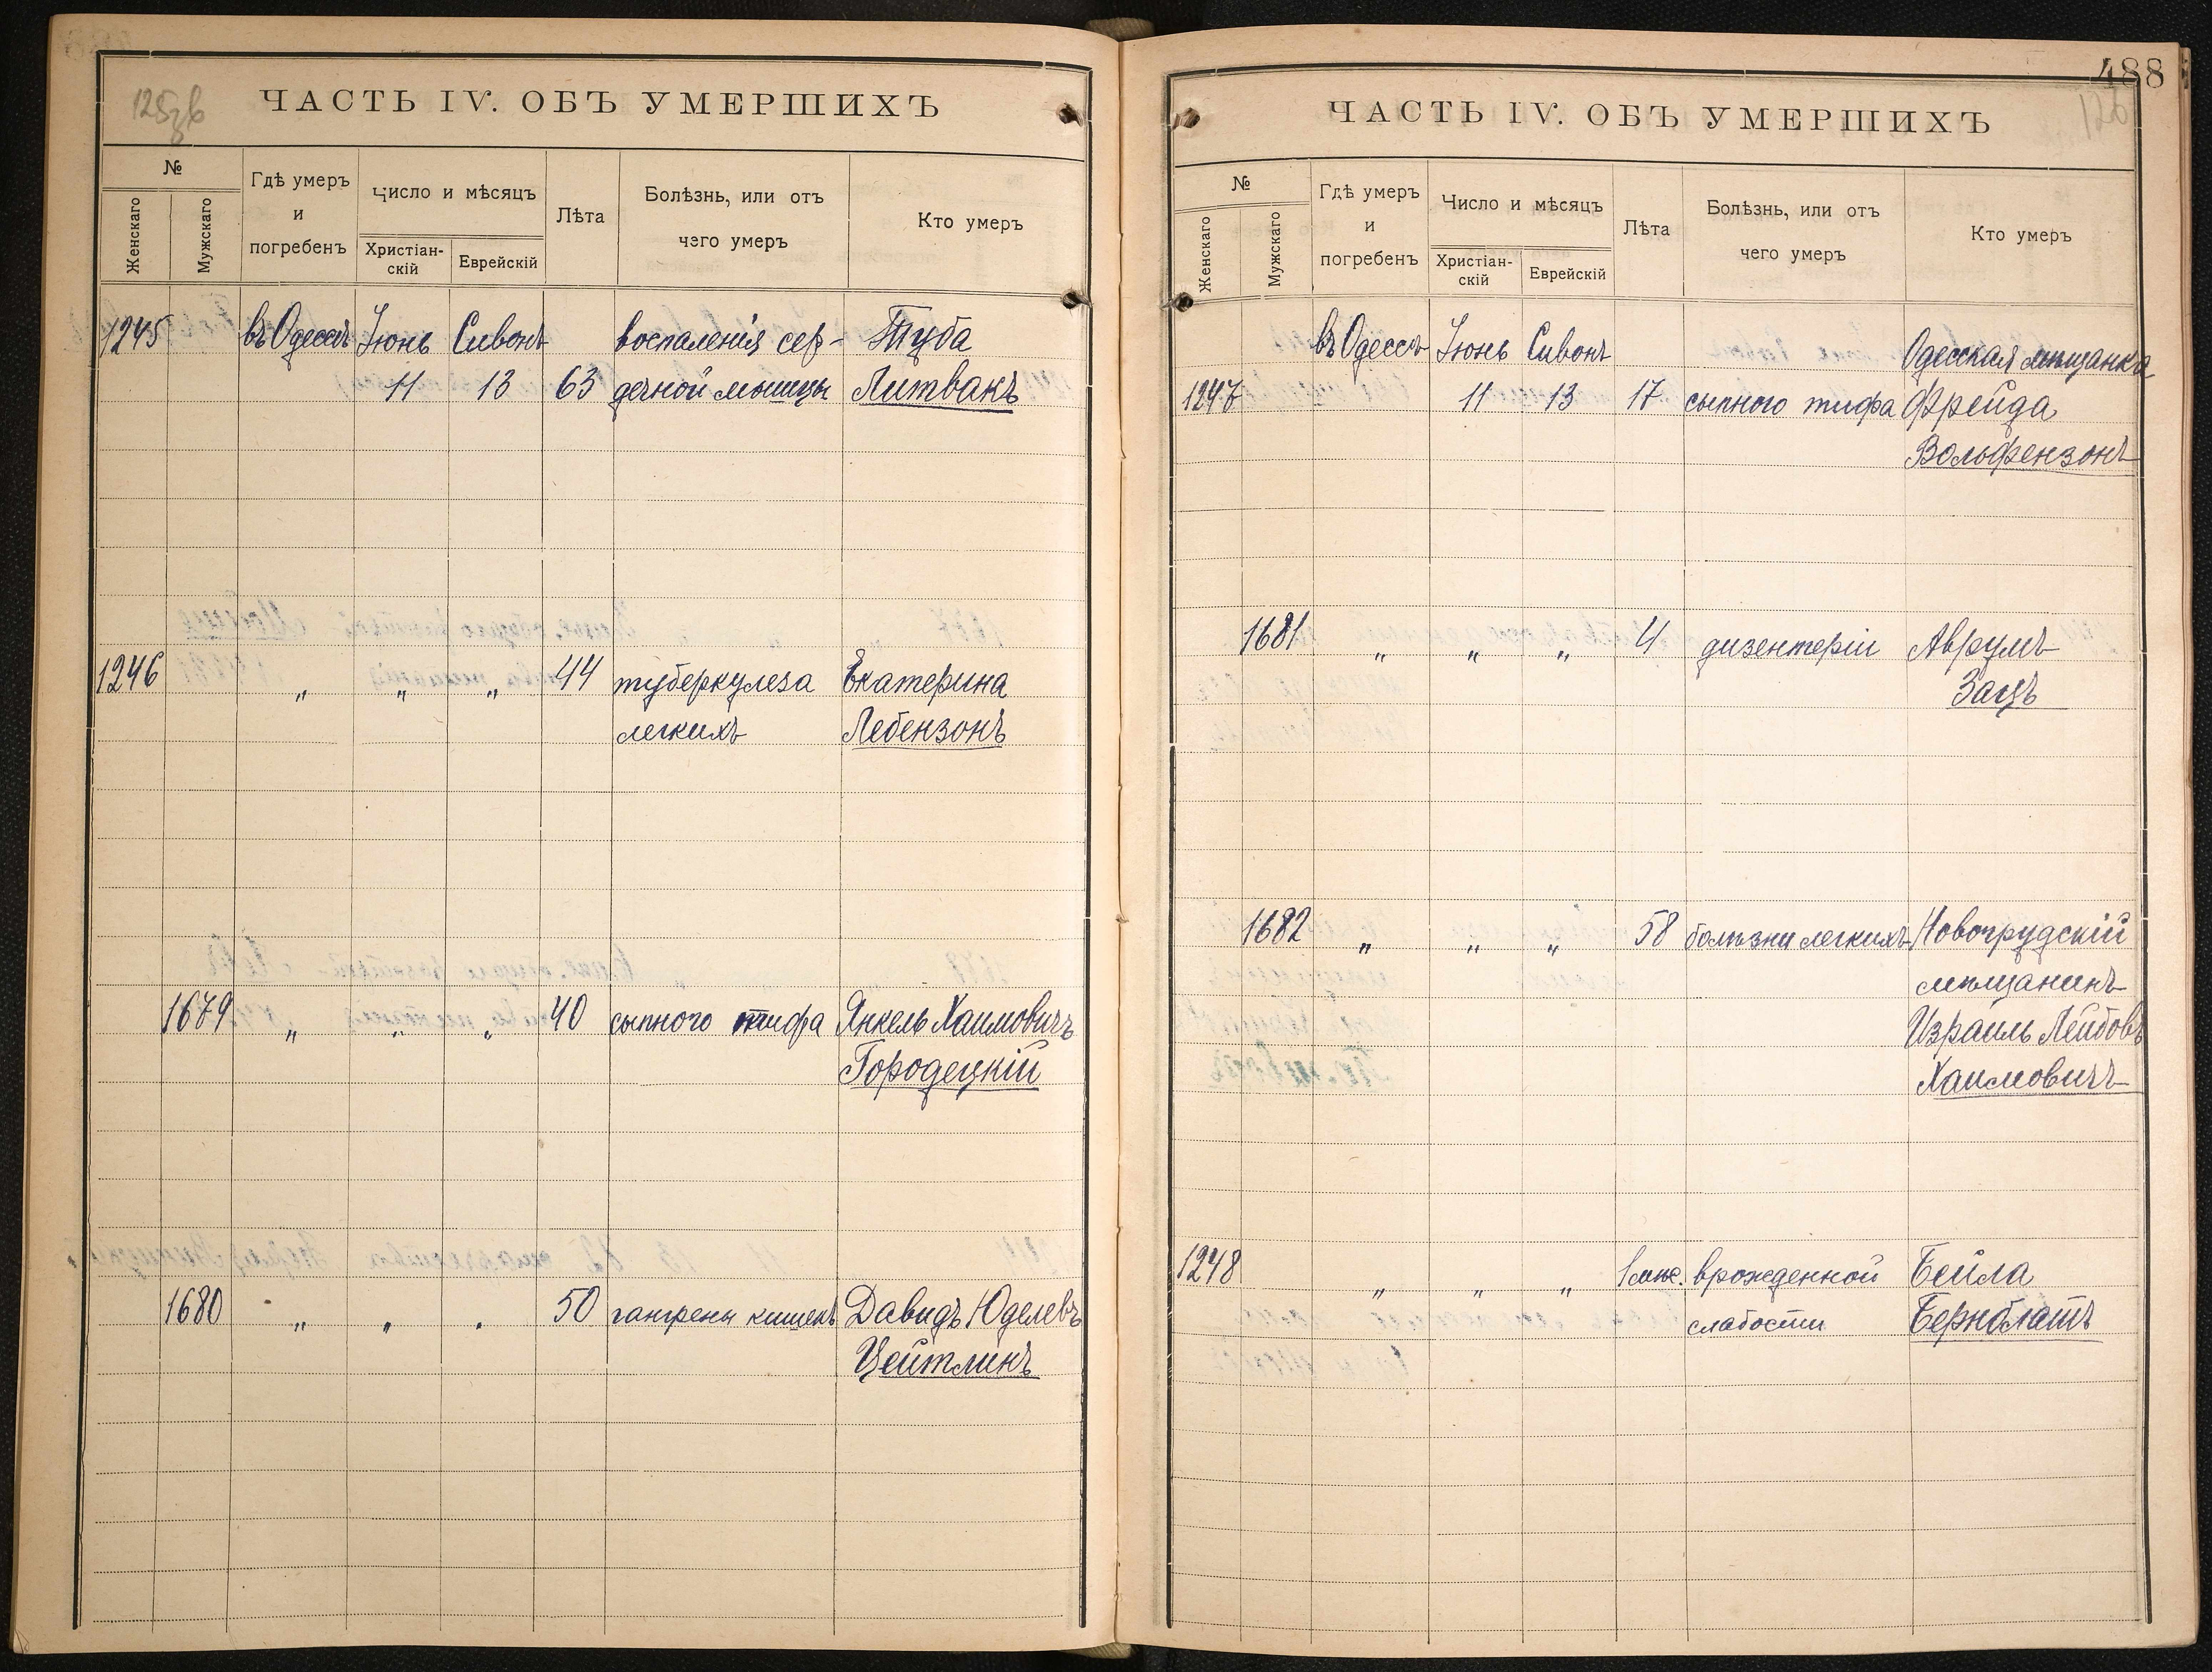 125 зв
ЧАСТЬ IV. ОБЪ УМЕРШИХЪ
№
Женскаго
Мужскаго
Гдѣ умеръ
и
погребенъ
Число и мѣсяцъ
Христіан-
скій
Еврейскій
Лѣта
Болѣзнь, или отъ
чего умеръ
Кто умеръ
1245 въ Одессѣ Іюнь Сивонъ воспаленія сер- Туба
11 13 63 дечной мышцы Литвакъ
1246 „ „ „ 44 туберкулеза Екатерина
легкихъ Лебензонъ
1679 „ „ „ 40 сыпного тифа Янкель Хаимовичъ
Городецкій
1680 „ „ „ 50 гангрены кишекъ Давидъ Юделевъ
Цейтлинъ
488
126
ЧАСТЬ IV. ОБЪ УМЕРШИХЪ
№
Женскаго
Мужскаго
Гдѣ умеръ
и
погребенъ
Число и мѣсяцъ
Христіан-
скій
Еврейскій
Лѣта
Болѣзнь, или отъ
чего умеръ
Кто умеръ
въ Одессѣ Іюнь Сивонъ Одесская мѣщанка
1247 11 13 17 сыпного тифа Фрейда
Вольфензонъ
1681 „ „ „ 4 дизентеріи Аврумъ
Зацъ
1682 „ „ „ 58 болѣзни легкихъ Новогрудскій
мѣщанинъ
Израиль Лейбовъ
Хаимовичъ
1248 „ „ „ 1 мѣс. врожденной Бейла
слабости Бернблатъ